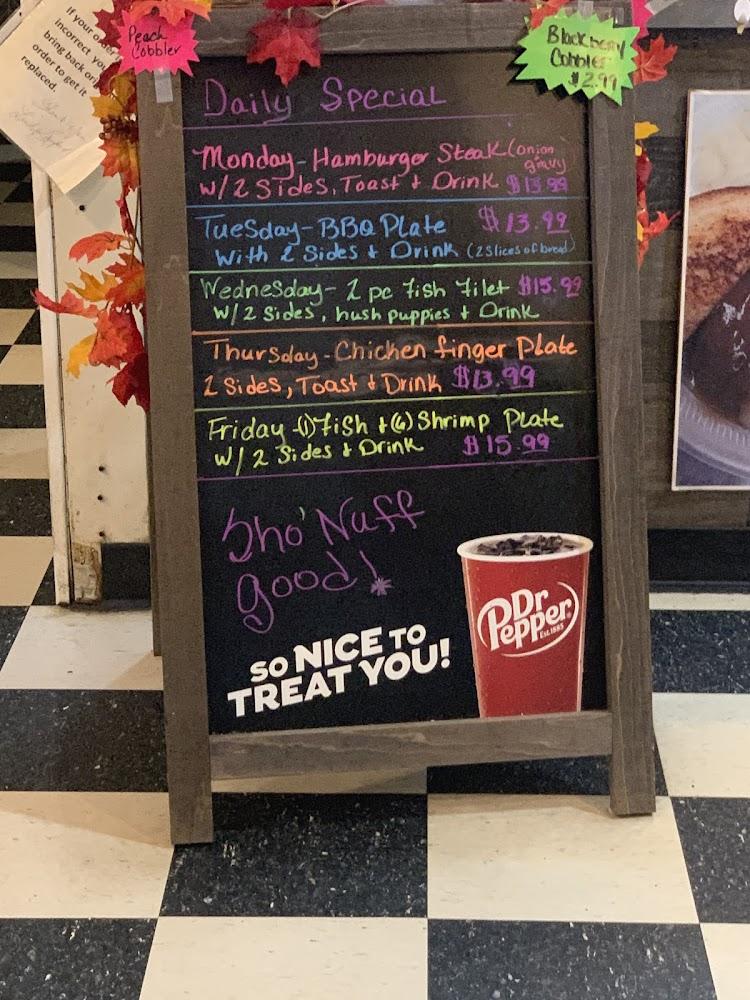 If your order
incorrect you
bring back ori
order to get it
replaced.
Peach
Cobbler
Blackberry
Cobbler
$2.99
Daily Special
Monday-Hamburger Steak (onion
gravy)
W/2 Sides, Toast + Drink $13.99
Tuesday-BBQ Plate $13.99
With 2 Sides + Drink (2 Slices of bread)
Wednesday-2 pc Fish Filet $15.99
W/2 Sides, hush puppies + Drink
Thursday-Chicken finger Plate
2 Sides, Toast + Drink $13.99
Friday-(1) Fish +(6) Shrimp Plate
W/ 2 Sides + Drink $15.99
Sho' Nuff
good!
SO NICE TO
TREAT YOU!
Dr
Pepper
EST. 1885